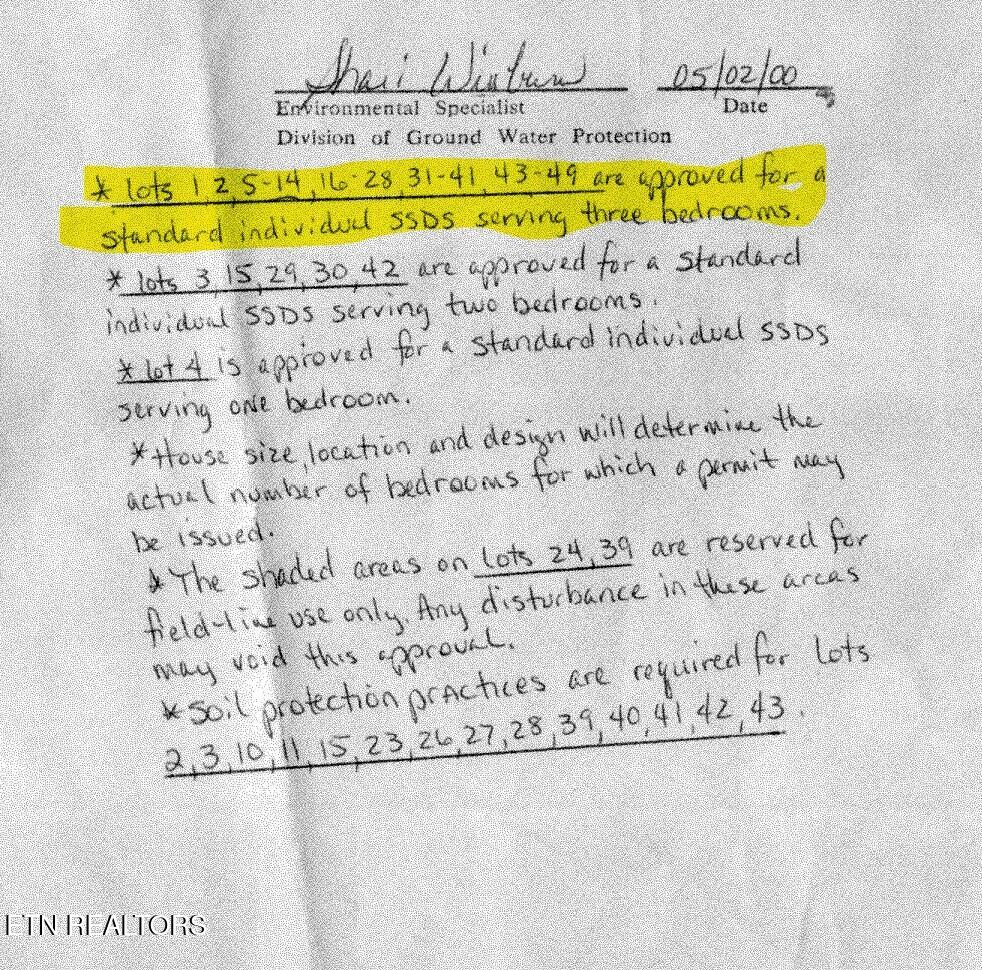 Shari
05/02/00
Environmental Specialist
Date
Division of Ground Water Protection
* lots 1, 2, 5-14, 16-28, 31-41, 43-49 are approved for a
standard individual SSDS serving three bedrooms.
* lots 3, 15, 29, 30, 42 are approved for a standard
individual SSDS serving two bedrooms.
* lot 4 is approved for a standard individual SSDS
serving one bedroom.
* House size, location and design will determine the
actual number of bedrooms for which a permit may
be issued.
* The shaded areas on lots 24, 39 are reserved for
field-line use only. Any disturbance in these areas
may void this approval.
* Soil protection practices are required for lots
2, 3, 10, 11, 15, 23, 26, 27, 28, 39, 40, 41, 42, 43.
ETN REALTORS